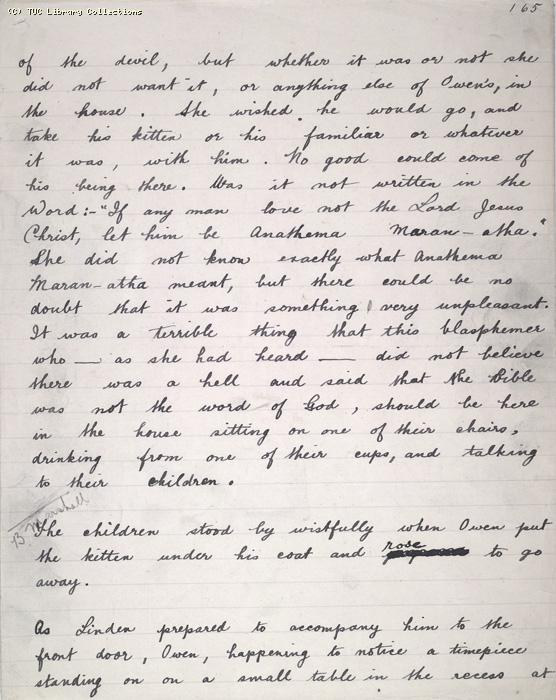 (C) TUC Library Collections
165
of the devil, but whether it was or not she
did not want it, or anything else of Owen's, in
the house. She wished he would go, and
take his kitten or his familiar or whatever
it was, with him. No good could come of
his being there. Was it not written in the
Word:- "If any man love not the Lord Jesus
Christ, let him be Anathema Maran-atha."
She did not know exactly what Anathema
Maran-atha meant, but there could be no
doubt that it was something very unpleasant.
It was a terrible thing that this blasphemer
who — as she had heard — did not believe
there was a hell and said that the Bible
was not the word of God, should be here
in the house sitting on one of their chairs,
drinking from one of their cups, and talking
to their children.
B. Marshall
The children stood by wistfully when Owen put
the kitten under his coat and rose to go
away.
As Linden prepared to accompany him to the
front door, Owen, happening to notice a timepiece
standing on on a small table in the recess at